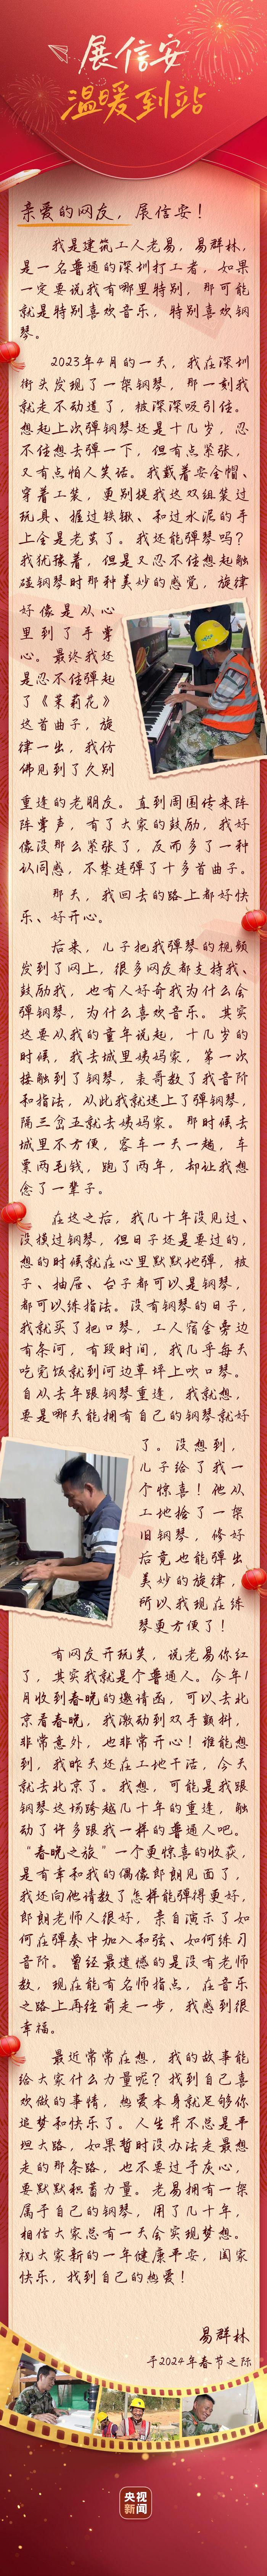 展信安
温暖到站
亲爱的网友，展信安！
我是建筑工人老易，易群林，
是一名普通的深圳打工者，如果
一定要说我有哪里特别，那可能
就是特别喜欢音乐，特别喜欢钢
琴。
2023年4月的一天，我在深圳
街头发现了一架钢琴，那一刻我
就走不动道了，被深深吸引住。
想起上次弹钢琴还是十几岁，忍
不住想去弹一下，但有点紧张，
又有点怕人笑话。我戴着安全帽、
穿着工装，更别提我这双组装过
玩具、握过铁锹、和过水泥的手
上全是老茧了。我还能弹琴吗？
我犹豫着，但是又忍不住想起触
碰钢琴时那种美妙的感觉，旋律
好像是从心
里到了手掌
心。最终我还
是忍不住弹起
了《茉莉花》
这首曲子，旋
律一出，我仿
佛见到了久别
重逢的老朋友。直到周围传来阵
阵掌声，有了大家的鼓励，我好
像没那么紧张了，反而多了一种
认同感，不禁连弹了十多首曲子。
那天，我回去的路上都好快
乐、好开心。
后来，儿子把我弹琴的视频
发到了网上，很多网友都支持我、
鼓励我，也有人好奇我为什么会
弹钢琴，为什么喜欢音乐。其实
这要从我的童年说起，十几岁的
时候，我去城里姨妈家，第一次
接触到了钢琴，表哥教了我音阶
和指法，从此我就迷上了弹钢琴，
隔三岔五就去姨妈家。那时候去
城里不方便，客车一天一趟，车
票两毛钱，跑了两年，却让我想
念了一辈子。
在这之后，我几十年没见过、
没摸过钢琴，但日子还是要过的，
想的时候就在心里默默地弹，被
子、抽屉、台子都可以是钢琴，
都可以练指法。没有钢琴的日子，
我就买了把口琴，工人宿舍旁边
有条河，有段时间，我几乎每天
吃完饭就到河边草坪上吹口琴。
自从去年跟钢琴重逢，我就想，
要是哪天能拥有自己的钢琴就好
了。没想到，
儿子给了我一
个惊喜！他从
工地捡了一架
旧钢琴，修好
后竟也能弹出
美妙的旋律，
所以我现在练
琴更方便了！
有网友开玩笑，说老易你红
了，其实我就是个普通人。今年1
月收到春晚的邀请函，可以去北
京看春晚，我激动到双手颤抖，
非常意外，也非常开心！谁能想
到，我昨天还在工地干活，今天
就去北京了。我想，可能是我跟
钢琴这场跨越几十年的重逢，触
动了许多跟我一样的普通人吧。
“春晚之旅”一个更惊喜的收获，
是有幸和我的偶像郎朗见面了，
我还向他请教了怎样能弹得更好，
郎朗老师人很好，亲自演示了如
何在弹奏中加入和弦、如何练习
音阶。曾经最遗憾的是没有老师
教，现在能有名师指点，在音乐
之路上再往前走一步，我感到很
幸福。
最近常常在想，我的故事能
给大家什么力量呢？找到自己喜
欢做的事情，热爱本身就足够你
追梦和快乐了。人生并不总是平
坦大路，如果暂时没办法走最想
走的那条路，也不要过于灰心，
要默默积蓄力量。老易拥有一架
属于自己的钢琴，用了几十年，
相信大家总有一天会实现梦想。
祝大家新的一年健康平安，阖家
快乐，找到自己的热爱！
易群林
于2024年春节之际
央视
新闻